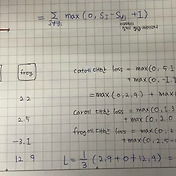 = Σ max (0, Sj - Syi + 1)
j≠yi
frog
cat이 대한 loss = max(0, 5.1
+ max(0, -1.
2.2
= max(0, 2.9) + max(
2.5
car이 대한 loss = max(0, 1.3
+ max(0, 2.0
-3.1
frog이 대한 loss = max(0, 2.
+ max(0, 2.5-
12.9
L = 1/3 (2.9 + 0 + 12.9) =